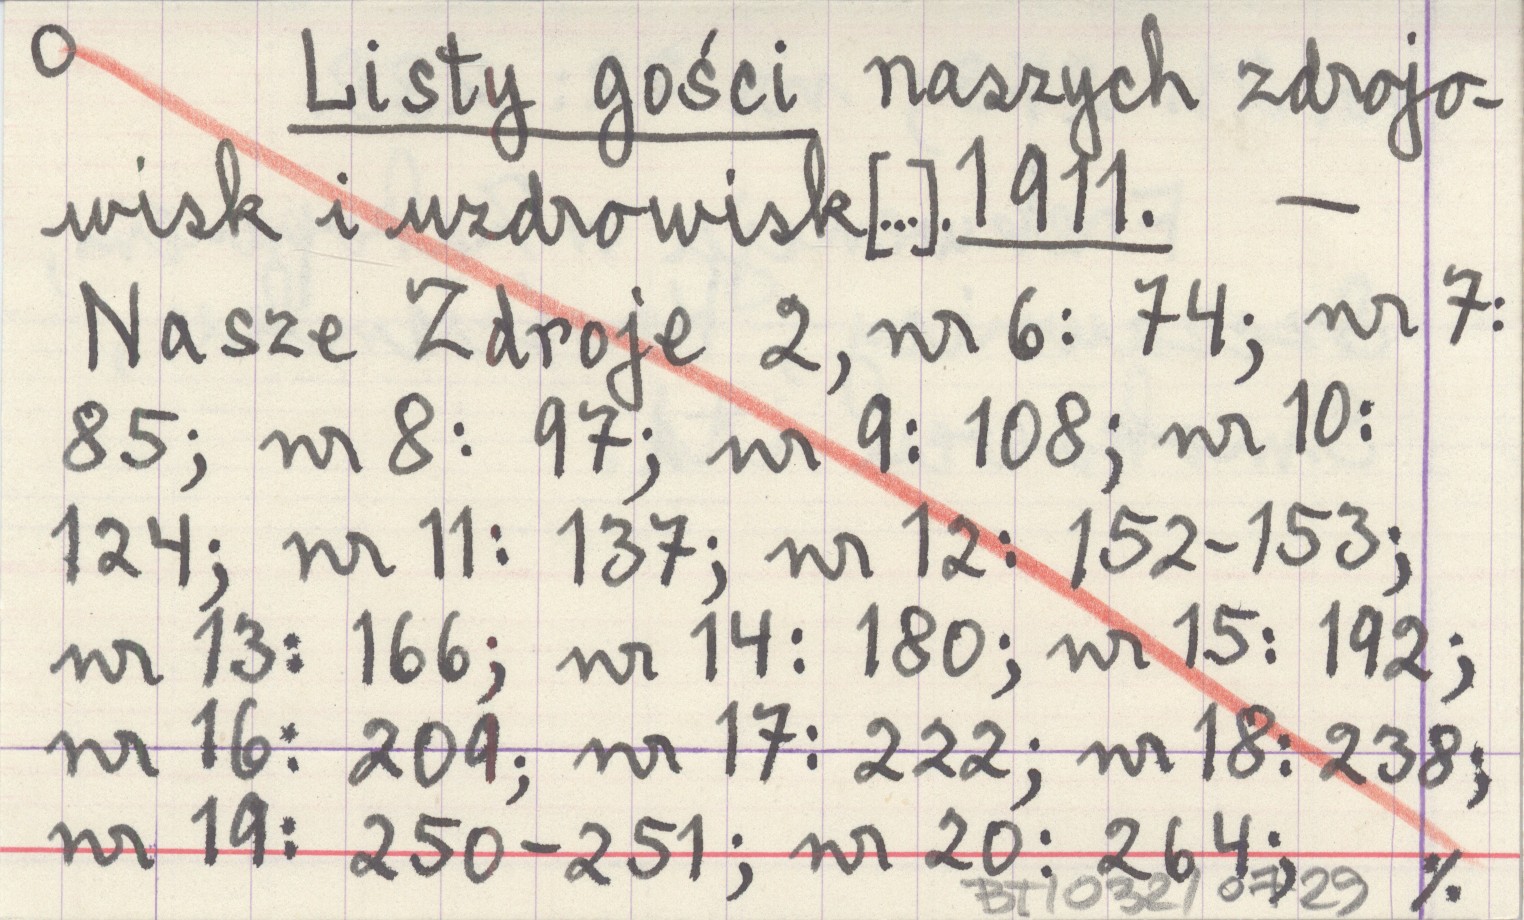 O Listy gości naszych zdrojo-
wisk i uzdrowisk[...]. 1911. —
Nasze Zdroje 2, nr 6: 74; nr 7:
85; nr 8: 97; nr 9: 108; nr 10:
124; nr 11: 137; nr 12: 152-153;
nr 13: 166; nr 14: 180; nr 15: 192;
nr 16: 209; nr 17: 222; nr 18: 238;
nr 19: 250-251; nr 20: 264; %